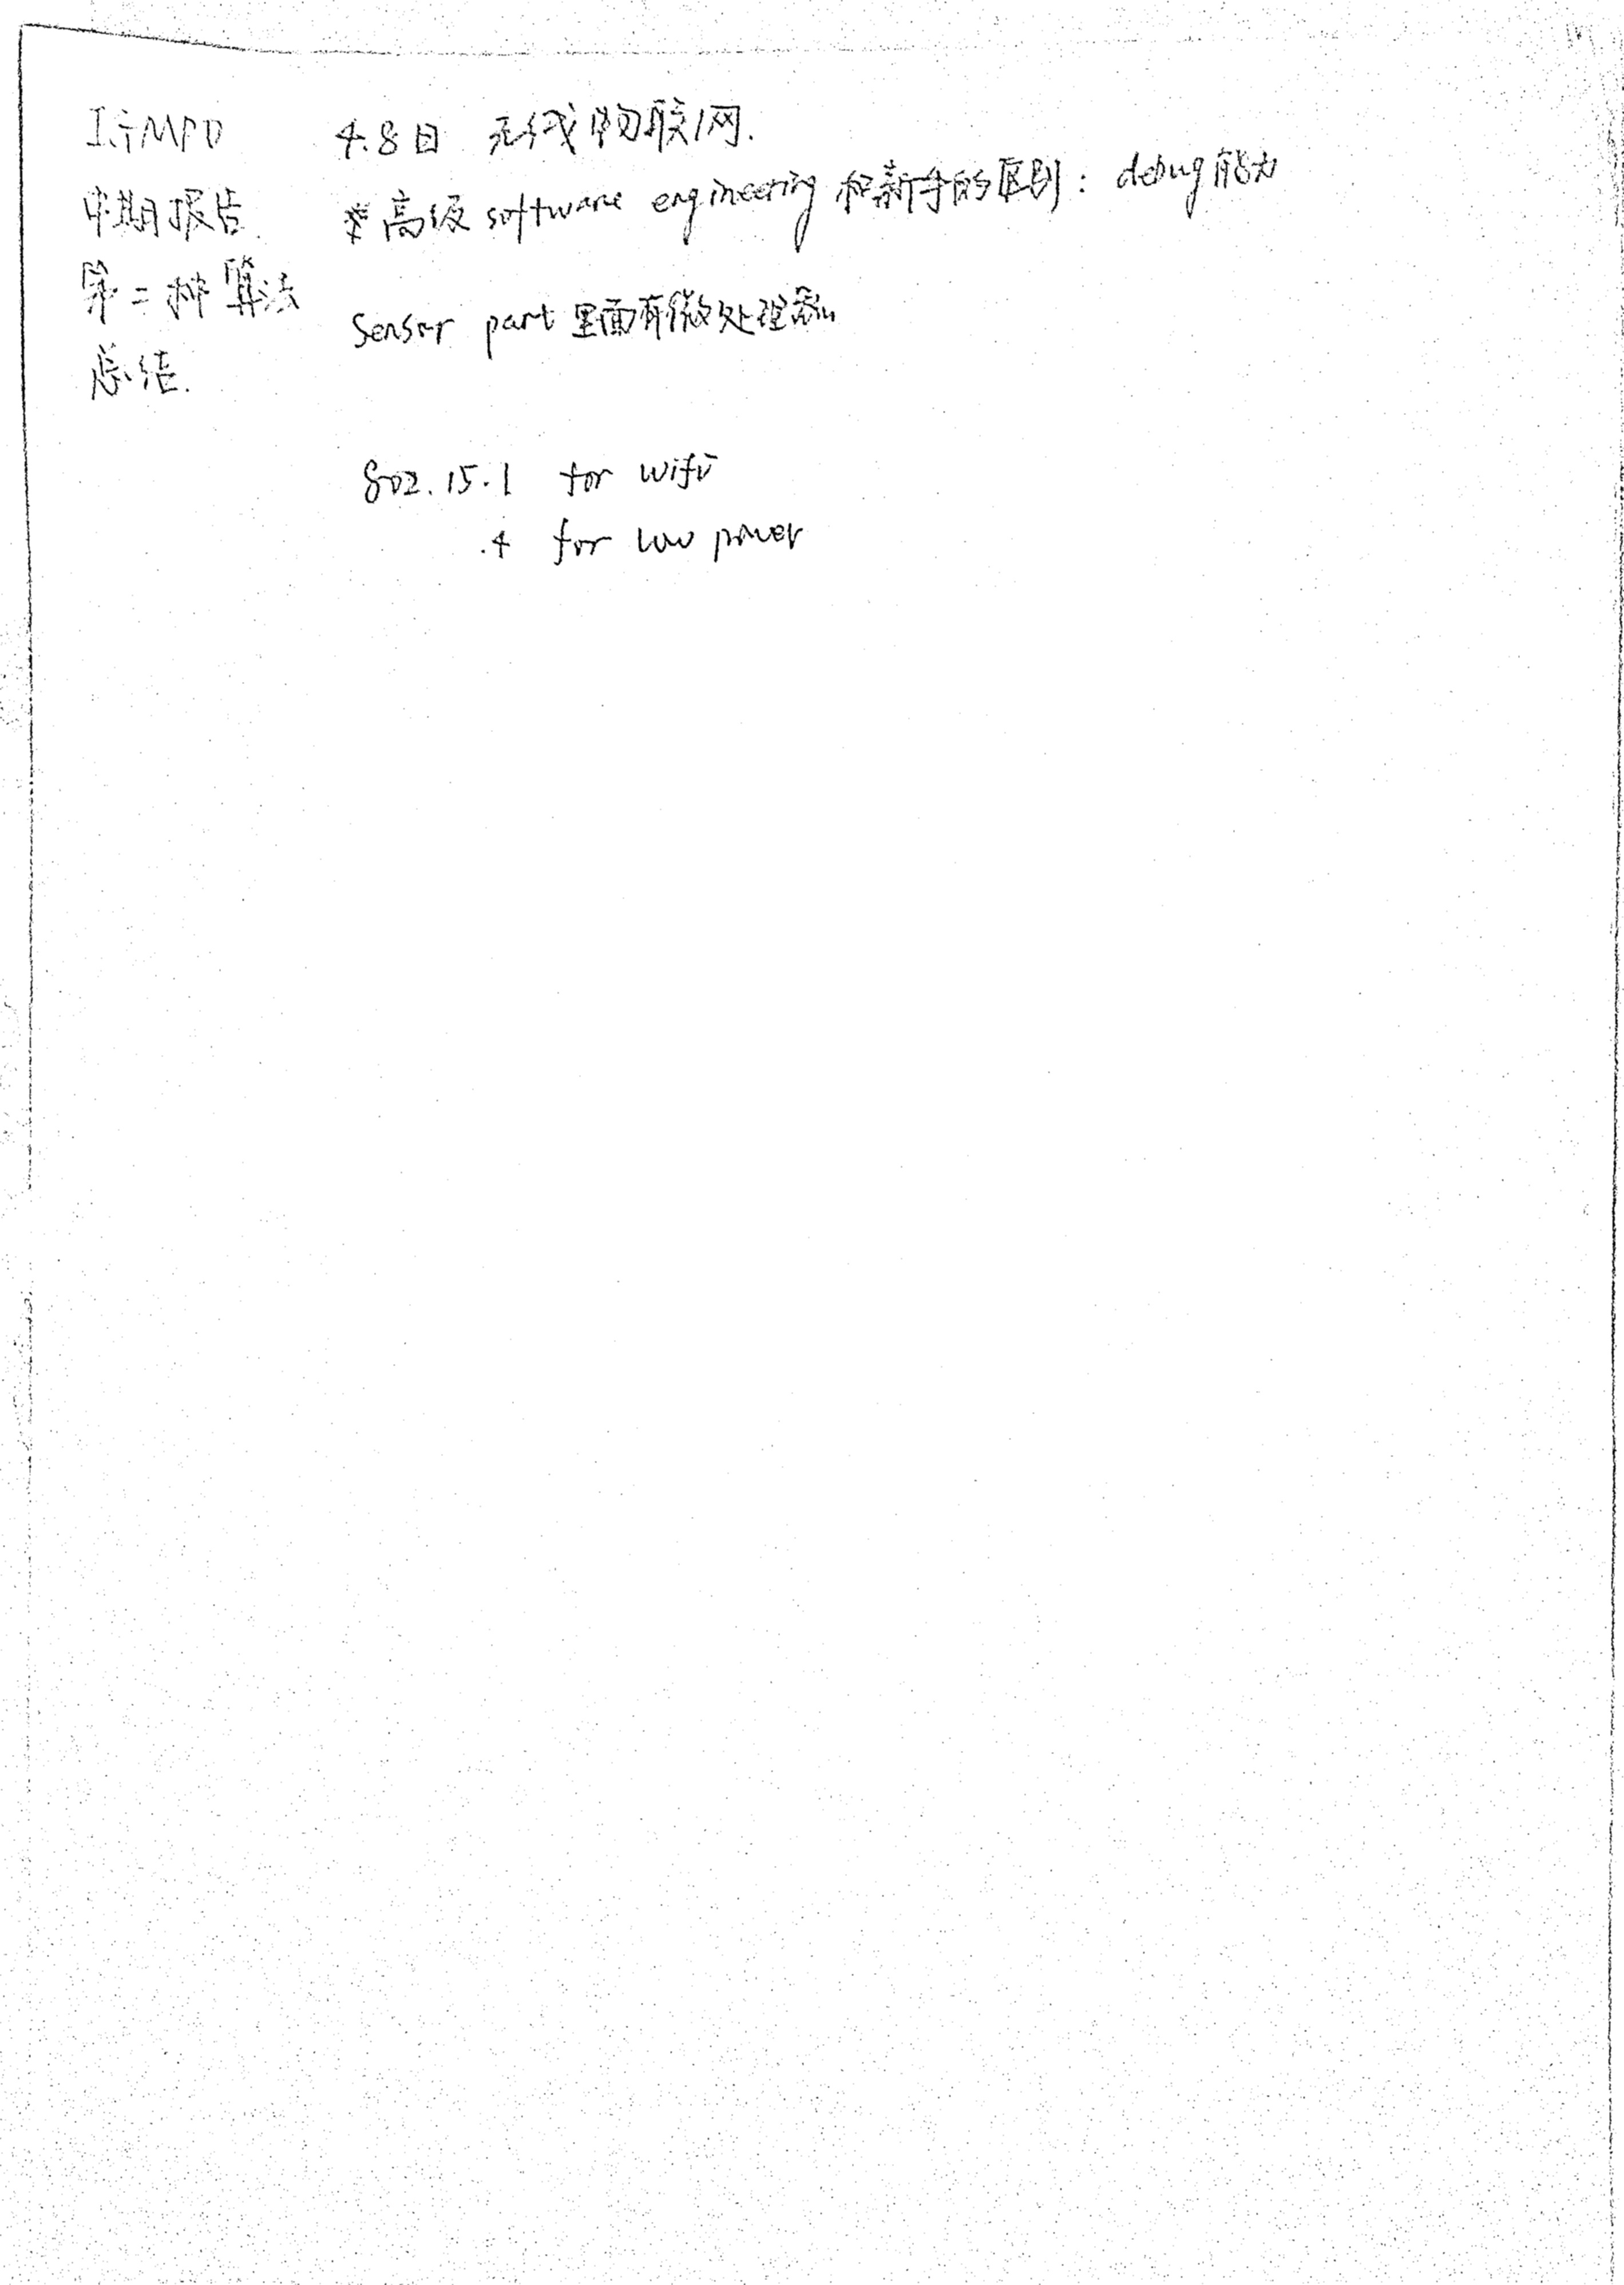 中期报告.
第二排算法
总结.
4.8日 无线物联网.
* 高级 software engineering 和新手的区别: debug能力
Sensor part 里面有微处理器
802.15.1 for wifi
.4 for low power